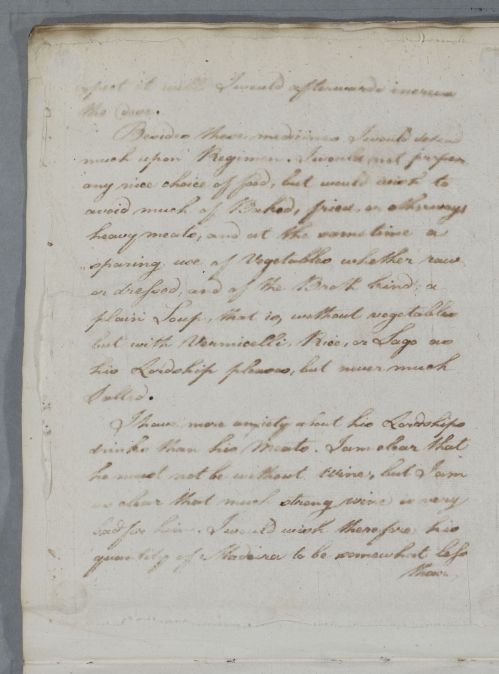 expect it will I would afterwards increase
the dose.
Besides these medicines I would depend
much upon Regimen. I would not propose
any nice choice of food, but would wish to
avoid much of Baked, fried, or otherways
heavy meats, and at the same time a
sparing use of Vegetables whether raw
or dressed, and of the Broth kind, a
plain Soup, that is, without vegetables
but with Vermicelli, Rice, or Sago as
his Lordship pleases, but never much
Salted.
I have more anxiety about his Lordships
drinks than his Meats. I am clear that
he must not be without Wine, but I am
as clear that much strong wine is very
bad for him. I would wish therefore his
quantity of Madeira to be somewhat less
than